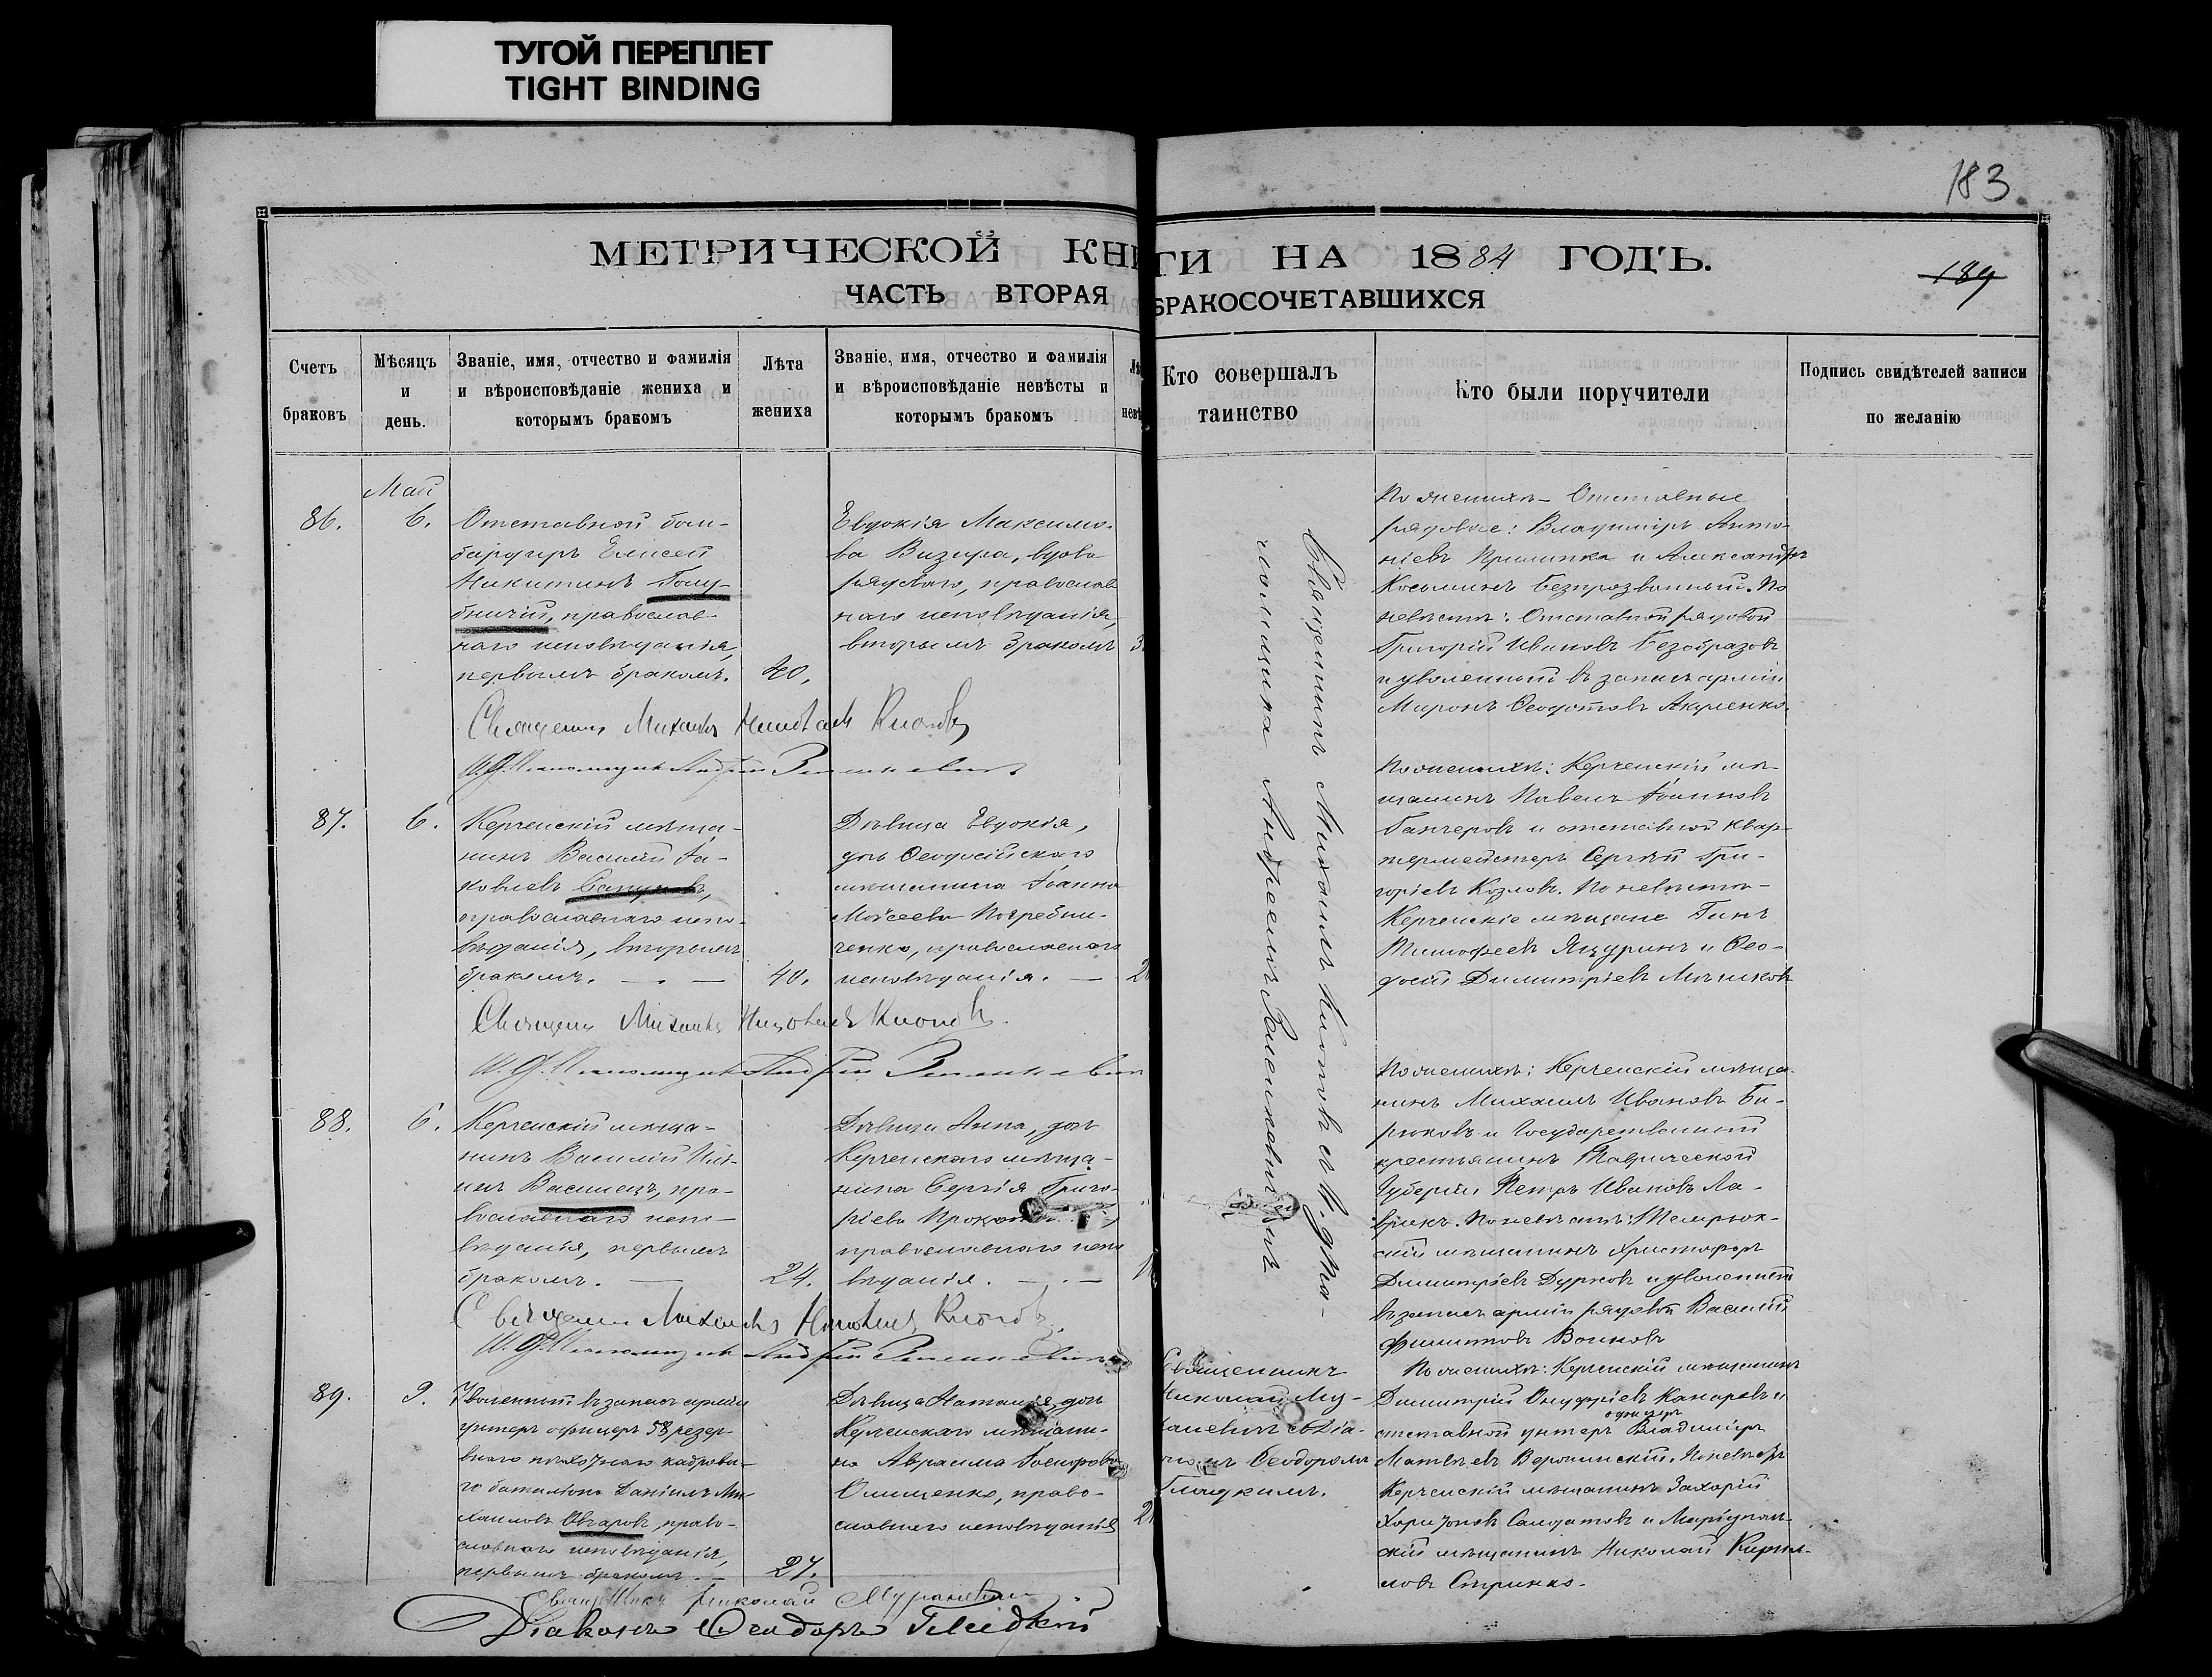 ТУГОЙ ПЕРЕПЛЕТ
TIGHT BINDING
183
МЕТРИЧЕСКОЙ КНИ
ГИ НА 1884 ГОДЪ.
189
ЧАСТЬ ВТОРАЯ
БРАКОСОЧЕТАВШИХСЯ
Счетъ
браковъ
Мѣсяцъ
и
день.
Званіе, имя, отчество и фамилія
и вѣроисповѣданіе жениха и
которымъ бракомъ
Лѣта
жениха
Званіе, имя, отчество и фамилія
и вѣроисповѣданіе невѣсты и
которымъ бракомъ
Кто совершалъ
таинство
Кто были поручители
Подпись свидѣтелей записи
по желанію
Май
86.
6.
Отставной бом-
бардиръ Елисей
Никитинъ Голу-
бничій, православ-
наго исповѣданія,
первымъ бракомъ.
40.
Евдокія Максимо-
ва Визира, вдова
рядоваго, православ
наго исповѣданія,
вторымъ бракомъ
По женихѣ – Отставные
рядовые: Владиміръ Анто-
ніевъ Прилипка и Александръ
Косьминъ Безпрозванный. По
невѣстѣ: Отставной рядовой
Григорій Ивановъ Безобразовъ
и уволенный въ запасъ арміи
Миронъ Ѳеодотовъ Акуленко.
Священникъ Михаилъ Киповъ
И. Д. Псаломщика Андрей Зеленкевичъ
87.
6.
Керченскій мѣща-
нинъ Василій Іа-
ковлевъ
православнаго испо-
вѣданія, вторымъ
бракомъ. —
40.
Дѣвица Евдокія,
дочь Ѳеодосійскаго
мѣщанина Іоанна
Моѵсеева Погребни-
ченко, православнаго
исповѣданія. —
По женихѣ: Керченскій мѣ-
щанинъ Павелъ Іоанновъ
Ганчеровъ и отставной квар-
термейстеръ Сергѣй Гри-
горіевъ Козловъ. По невѣстѣ –
Керченскіе мѣщане
Тимофеевъ Ящуринъ и Ѳео-
досій Димитріевъ
Священникъ Михаилъ Киповъ
И. Д. Псаломщика Андрей Зеленкевичъ
88.
6.
Керченскій мѣща-
нинъ Василій Иль-
инъ Василецъ, пра-
вославнаго испо-
вѣданія, первымъ
бракомъ. —
24.
Дѣвица Анна, дочь
Керченскаго мѣща-
нина Сергія Григо-
ріева
православнаго испо
вѣданія. —
По женихѣ: Керченскій мѣща-
нинъ Михаилъ Ивановъ Би-
рюковъ и Государственный
крестьянинъ Таврической
Губерніи Петръ Ивановъ Ла-
врикъ. По невѣстѣ: Темрюк-
скій мѣщанинъ Христофоръ
Димитріевъ Дурковъ и уволенный
въ запасъ арміи рядовой Василій
Филиповъ Волковъ
Священникъ Михаилъ Киповъ
И. Д. Псаломщика Андрей Зеленкевичъ
Священникъ Михаилъ Киповъ съ И. д. Пса-
ломщика Андреемъ Зеленкевичемъ
89.
9.
Уволенный въ запасъ арміи
унтеръ офицеръ 58 резер-
внаго пѣхотнаго кадрова-
го баталіона Даніилъ Ми-
хаиловъ Овчаровъ, право-
славнаго исповѣданія,
первымъ бракомъ. —
27.
Дѣвица Наталія, дочь
Керченскаго мѣщани-
на Авраама
Онищенко, право-
славнаго исповѣданія
Священникъ
Николай Му-
раневичъ съ Діа-
кономъ Ѳеодоромъ
Гладкимъ.
По женихѣ: Керченскій мѣщанинъ
Димитрій Онуфріевъ Канаревъ и
отставной унтеръ офицеръ Владиміръ
Матвѣевъ Веронинскій. По невѣстѣ
Керченскій мѣщанинъ Захарій
Харитоновъ Солдатовъ и Маріуполь-
скій мѣщанинъ Николай Кирил-
ловъ Стринко.
Священникъ Николай Мураневичъ
Діаконъ Ѳеодоръ Гладкій